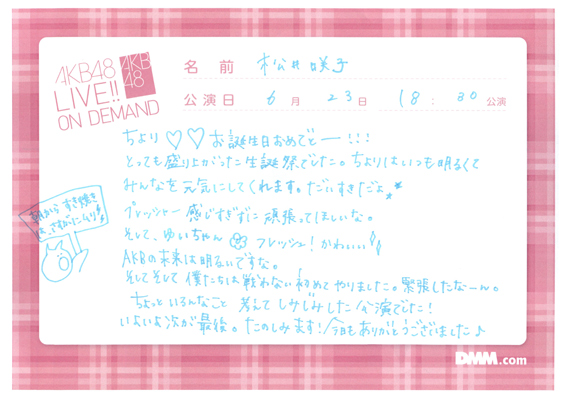 AKB48
LIVE!!
ON DEMAND
AKB
48
名前 松井咲子
公演日 6月23日 18:30公演
ちより♡♡お誕生日おめでとー!!!
とっても盛り上がった生誕祭でした。ちよりはいつも明るくて
みんなを元気にしてくれます。だいすきだよ
プレッシャー感じすぎずに頑張ってほしいな。
そして、ゆいちゃん フレッシュ!かわいい
AKBの未来は明るいですな。
そしてそして僕たちは戦わない初めてやりました。緊張したなーん。
ちょっといろんなこと考えてしみじみした公演でした!
いよいよ次が最後。たのしみます!今日もありがとうございました♪
朝から すき焼き
は、さすがにムリ!
DMM.com